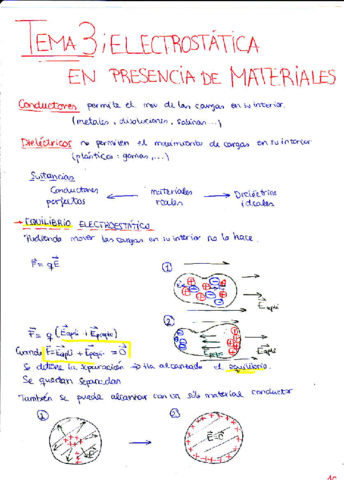 TEMA 3: ELECTROSTÁTICA
EN PRESENCIA DE MATERIALES
Conductores permite el mov de las cargas en su interior.
(metales, disoluciones, salinas...)
Dieléctricos no permiten el movimiento de cargas en su interior
(plásticos, gomas,...)
Sustancias
Conductores perfectos ← materiales reales → Dieléctricos ideales
→ EQUILIBRIO ELECTROESTÁTICO
Pudiendo mover las cargas en su interior no lo hace.
F = qE
①
E apli
②
F = q(E apli + E propio)
E propio
E apli
Cuando E = E apli + E propi = 0
Se detiene la separación → Ha alcanzado el equilibrio.
Se quedan separadas
También se puede alcanzar con un solo material conductor
①
②
E=0